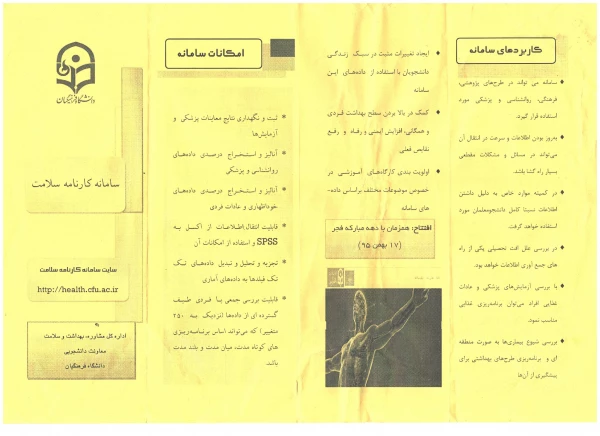 کاربردهای سامانه
سامانه می تواند در طرح‌های پژوهشی،
فرهنگی، روانشناسی و پزشکی مورد
استفاده قرار گیرد.
به‌روز بودن اطلاعات و سرعت در انتقال آن
می‌تواند در مسائل و مشکلات مقطعی
بسیار راه گشا باشد.
در کمیته موارد خاص به دلیل داشتن
اطلاعات نسبتا کامل دانشجومعلمان مورد
استفاده خواهد گرفت.
در بررسی علل افت تحصیلی یکی از راه
های جمع آوری اطلاعات خواهد بود.
با بررسی آزمایش‌های پزشکی و عادات
غذایی افراد می‌توان برنامه‌ریزی غذایی
مناسب نمود.
بررسی شیوع بیماری‌ها به صورت منطقه
ای و برنامه‌ریزی طرح‌های بهداشتی برای
پیشگیری از آن‌ها
ایجاد تغییرات مثبت در سبک زندگی
دانشجویان با استفاده از داده‌های این
سامانه
کمک در بالا بردن سطح بهداشت فردی
و همگانی، افزایش ایمنی و رفاه و رفع
نقایص فعلی
اولویت بندی کارگاه‌های آموزشی در
خصوص موضوعات مختلف براساس داده-
های سامانه
افتتاح: همزمان با دهه مبارکه فجر
(۱۷ بهمن ۹۵)
امکانات سامانه
ثبت و نگهداری نتایج معاینات پزشکی و
آزمایش‌ها
آنالیز و استخراج درصدی داده‌های
روانشناسی و پزشکی
آنالیز و استخراج درصدی داده‌های
خوداظهاری و عادات فردی
قابلیت انتقال اطلاعات از اکسل به
SPSS و استفاده از امکانات آن
تجزیه و تحلیل و تبدیل داده‌های تک
تک فیلدها به داده‌های آماری
قابلیت بررسی جمعی یا فردی طیف
گسترده ای از داده‌ها (نزدیک به ۲۵۰
متغییر) که می‌تواند اساس برنامه‌ریزی
های کوتاه مدت، میان مدت و بلند مدت
باشد.
دانشگاه فرهنگیان
سامانه کارنامه سلامت
سایت سامانه کارنامه سلامت
http://health.cfu.ac.ir
اداره کل مشاوره، بهداشت و سلامت
معاونت دانشجویی
دانشگاه فرهنگیان